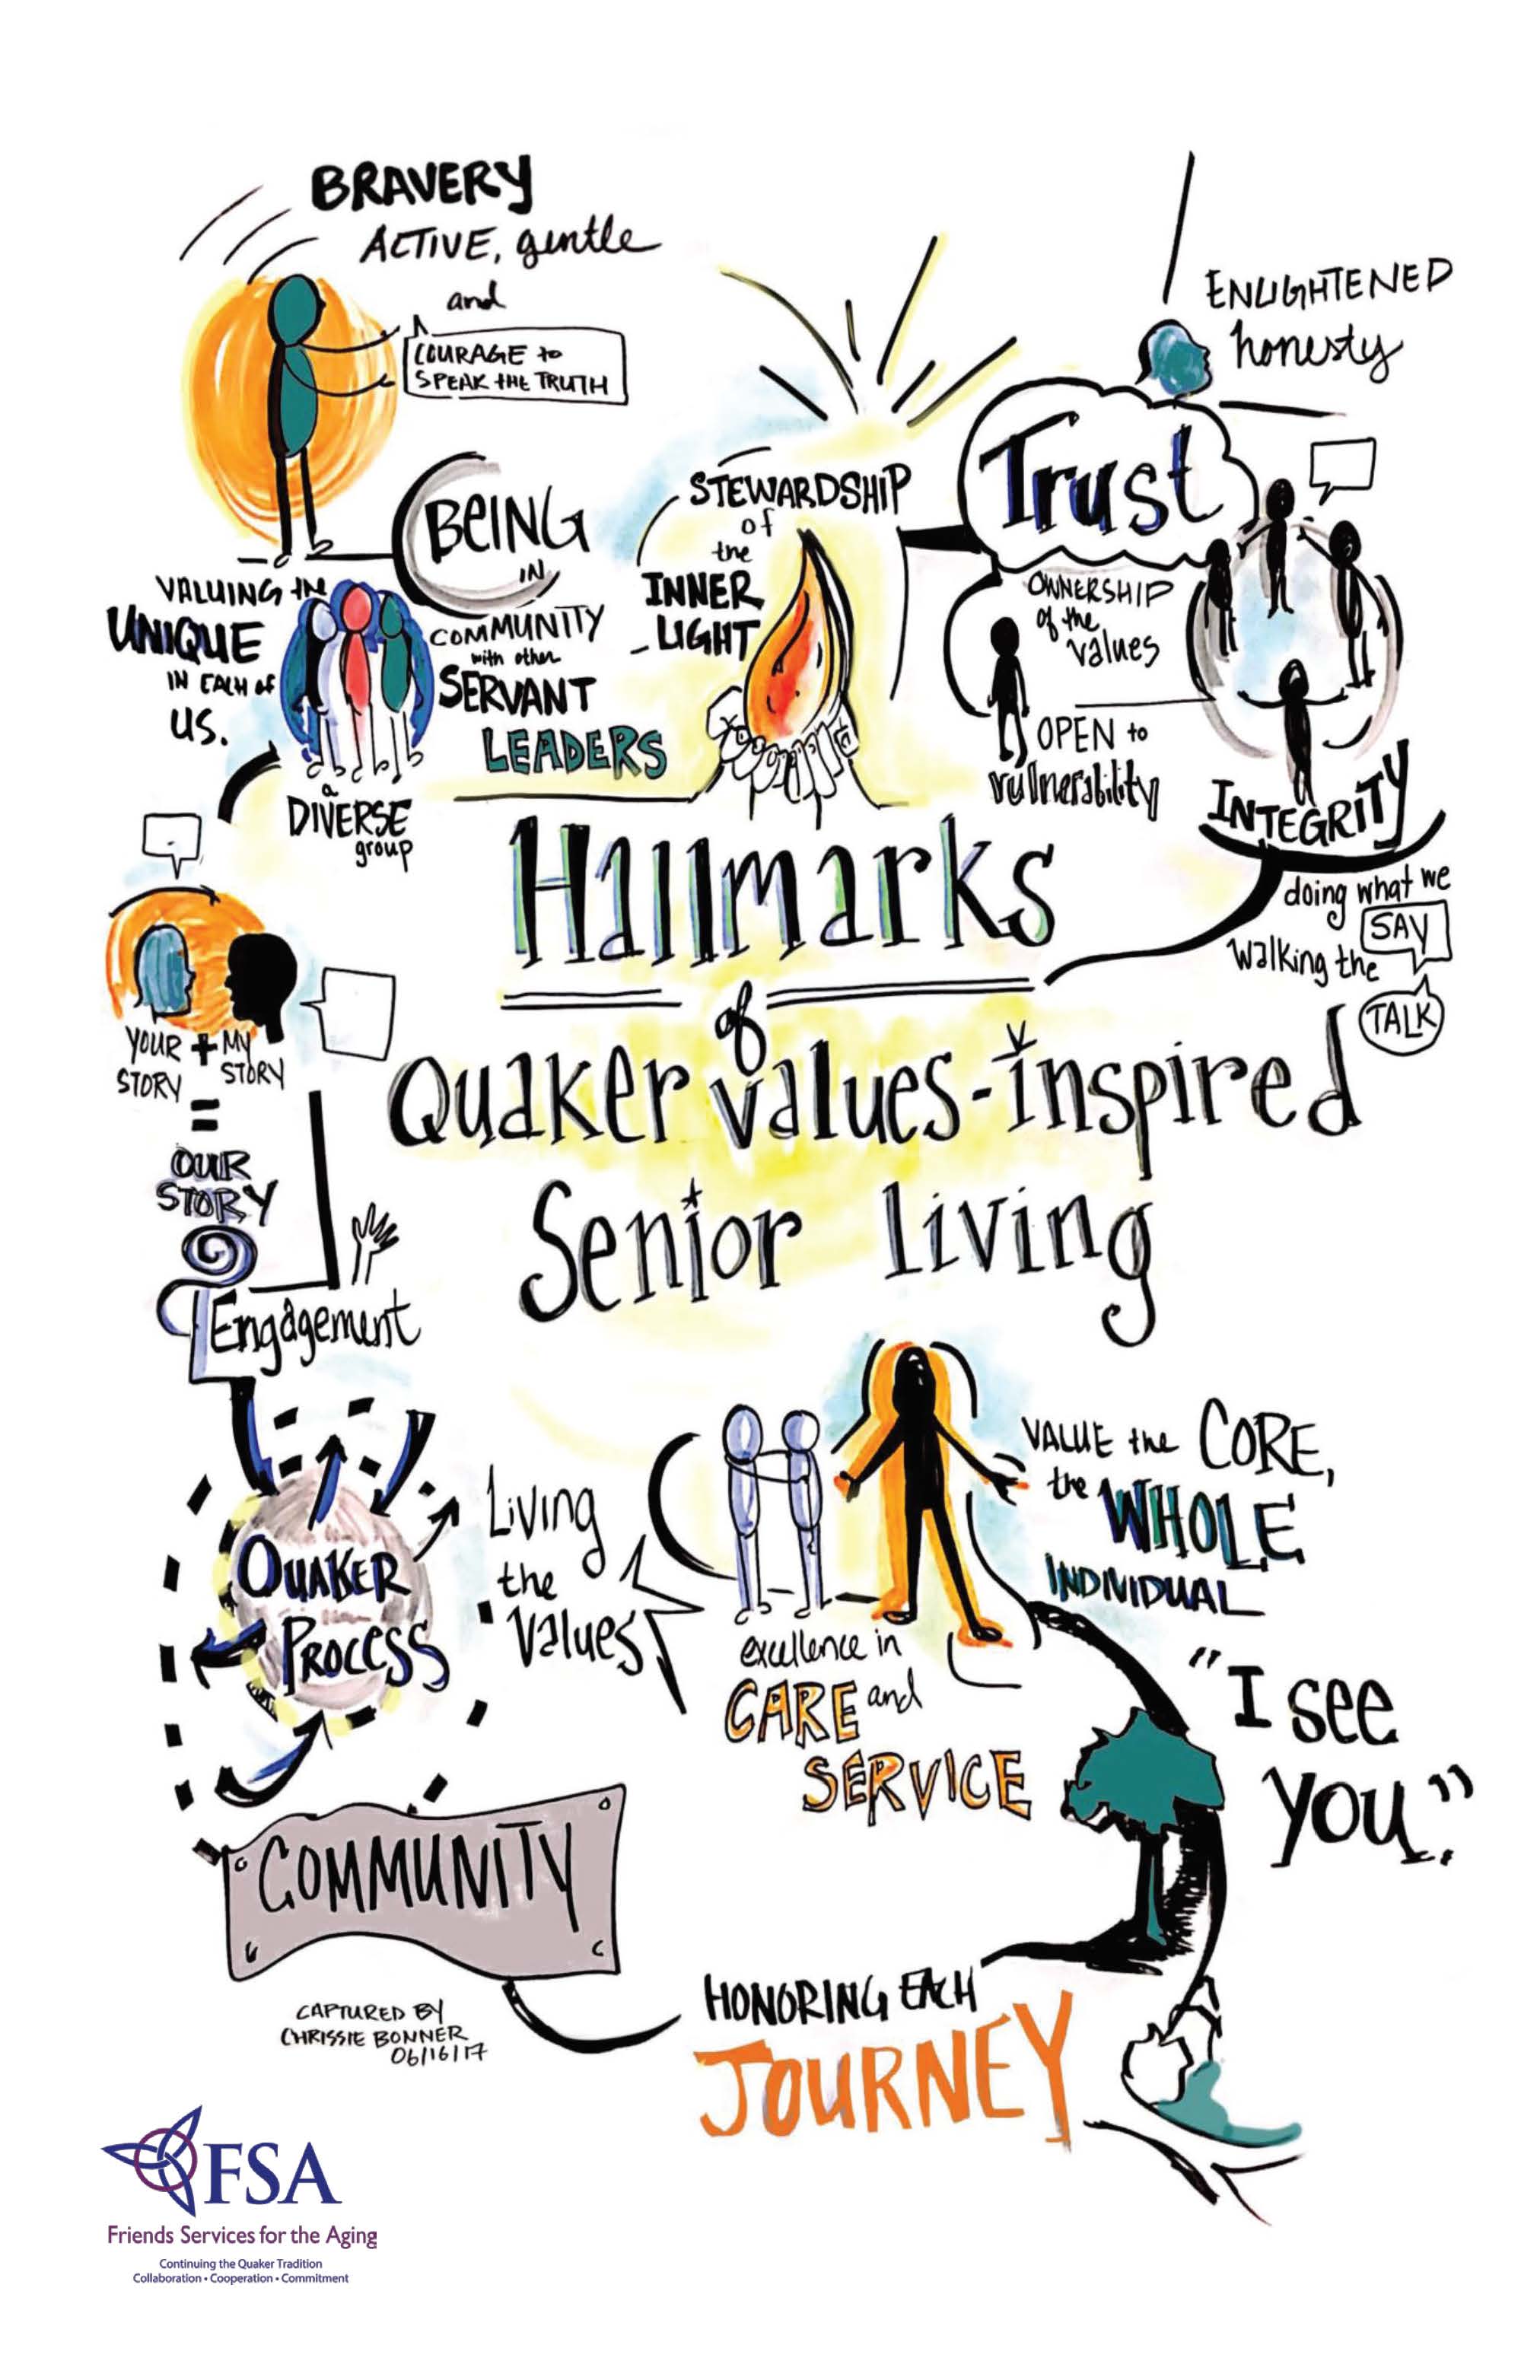 BRAVERY
ACTIVE, gentle
and
COURAGE to
SPEAK tHE TRUTH
BEING
IN
COMMUNITY
with other
SERVANT
LEADERS
VALUING tHE
UNIQUE
IN EACH OF
US.
a
DIVERSE
group
STEWARDSHIP
of
the
INNER
LIGHT
ENLIGHTENED
honesty
Trust
OWNERSHIP
of the
values
OPEN to
vulnerability
INTEGRITY
doing what we
SAY
walking the
TALK
Hallmarks
of
Quaker values-inspired
Senior Living
YOUR + MY
STORY STORY
=
OUR
STORY
Engagement
QUAKER
PROCESS
Living
the
Values
excellence in
CARE and
SERVICE
VALUE the CORE,
the WHOLE
INDIVIDUAL
"I see
you."
COMMUNITY
HONORING EACH
JOURNEY
CAPTURED BY
CHRISSIE BONNER
06/16/17
FSA
Friends Services for the Aging
Continuing the Quaker Tradition
Collaboration • Cooperation • Commitment